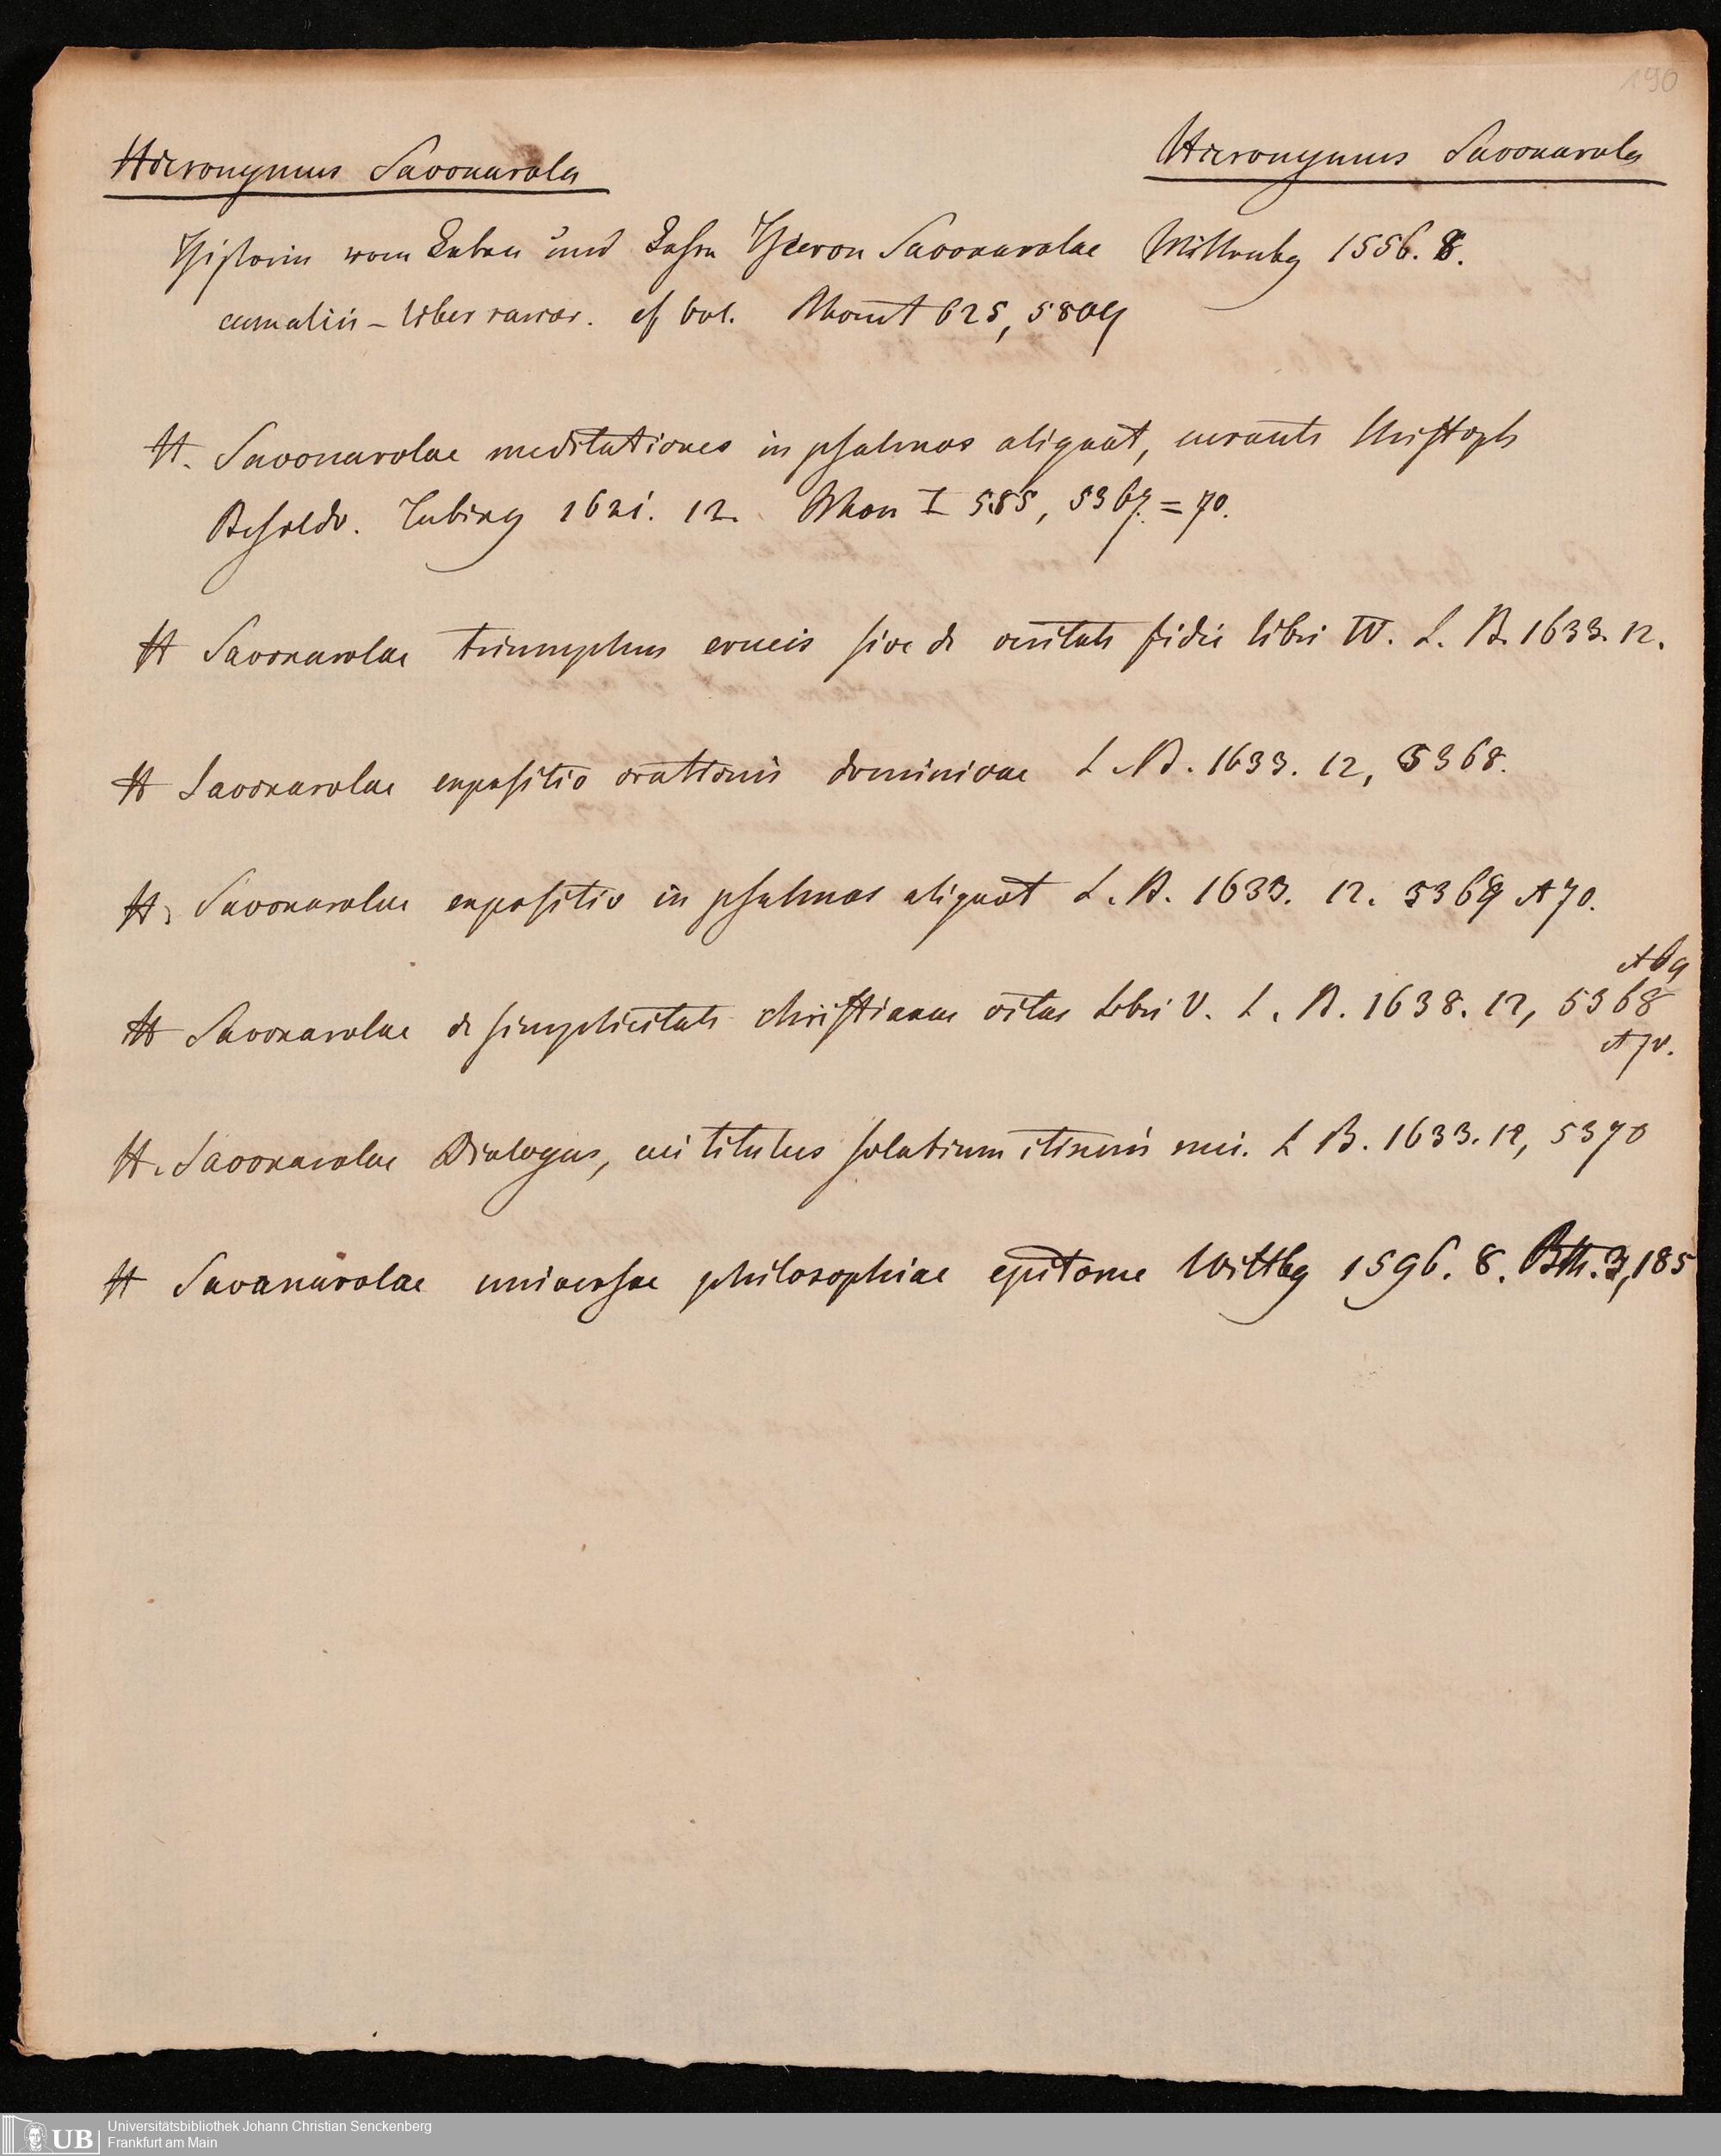 190
Hieronymus Savonarola
Hieronymus Savonarola
Historie vom Leben und Lehre Hieron Savonarolae Wittenbg 1556. 8.
cum aliis – liber rarior. cf 625, 5809
H. Savonarolae meditationes in psalmos aliquot, curante Christoph
Besoldo. Tubing 1621. 12. I 585, 5367 = 70.
H Savonarolae triumphus crucis sive de veritate fidei libri IV. L. B. 1633. 12.
H Savonarolae expositio orationis dominicae L. B. 1633. 12, 5368.
H. Savonarolae expositio in psalmos aliquot L. B. 1633. 12. 5369 + 70.
+ 69
H Savonarolae de simplicitate christianae vitae Libri V. L. B. 1638. 12, 5368
+ 70.
H. Savonarolae Dialogus, cui titulus solatium itineris mei. L B. 1633. 12, 5370
H Savanarolae universae philosophiae epitome Wittbg 1596. 8. Bth. 3, 185
UB
Universitätsbibliothek Johann Christian Senckenberg
Frankfurt am Main